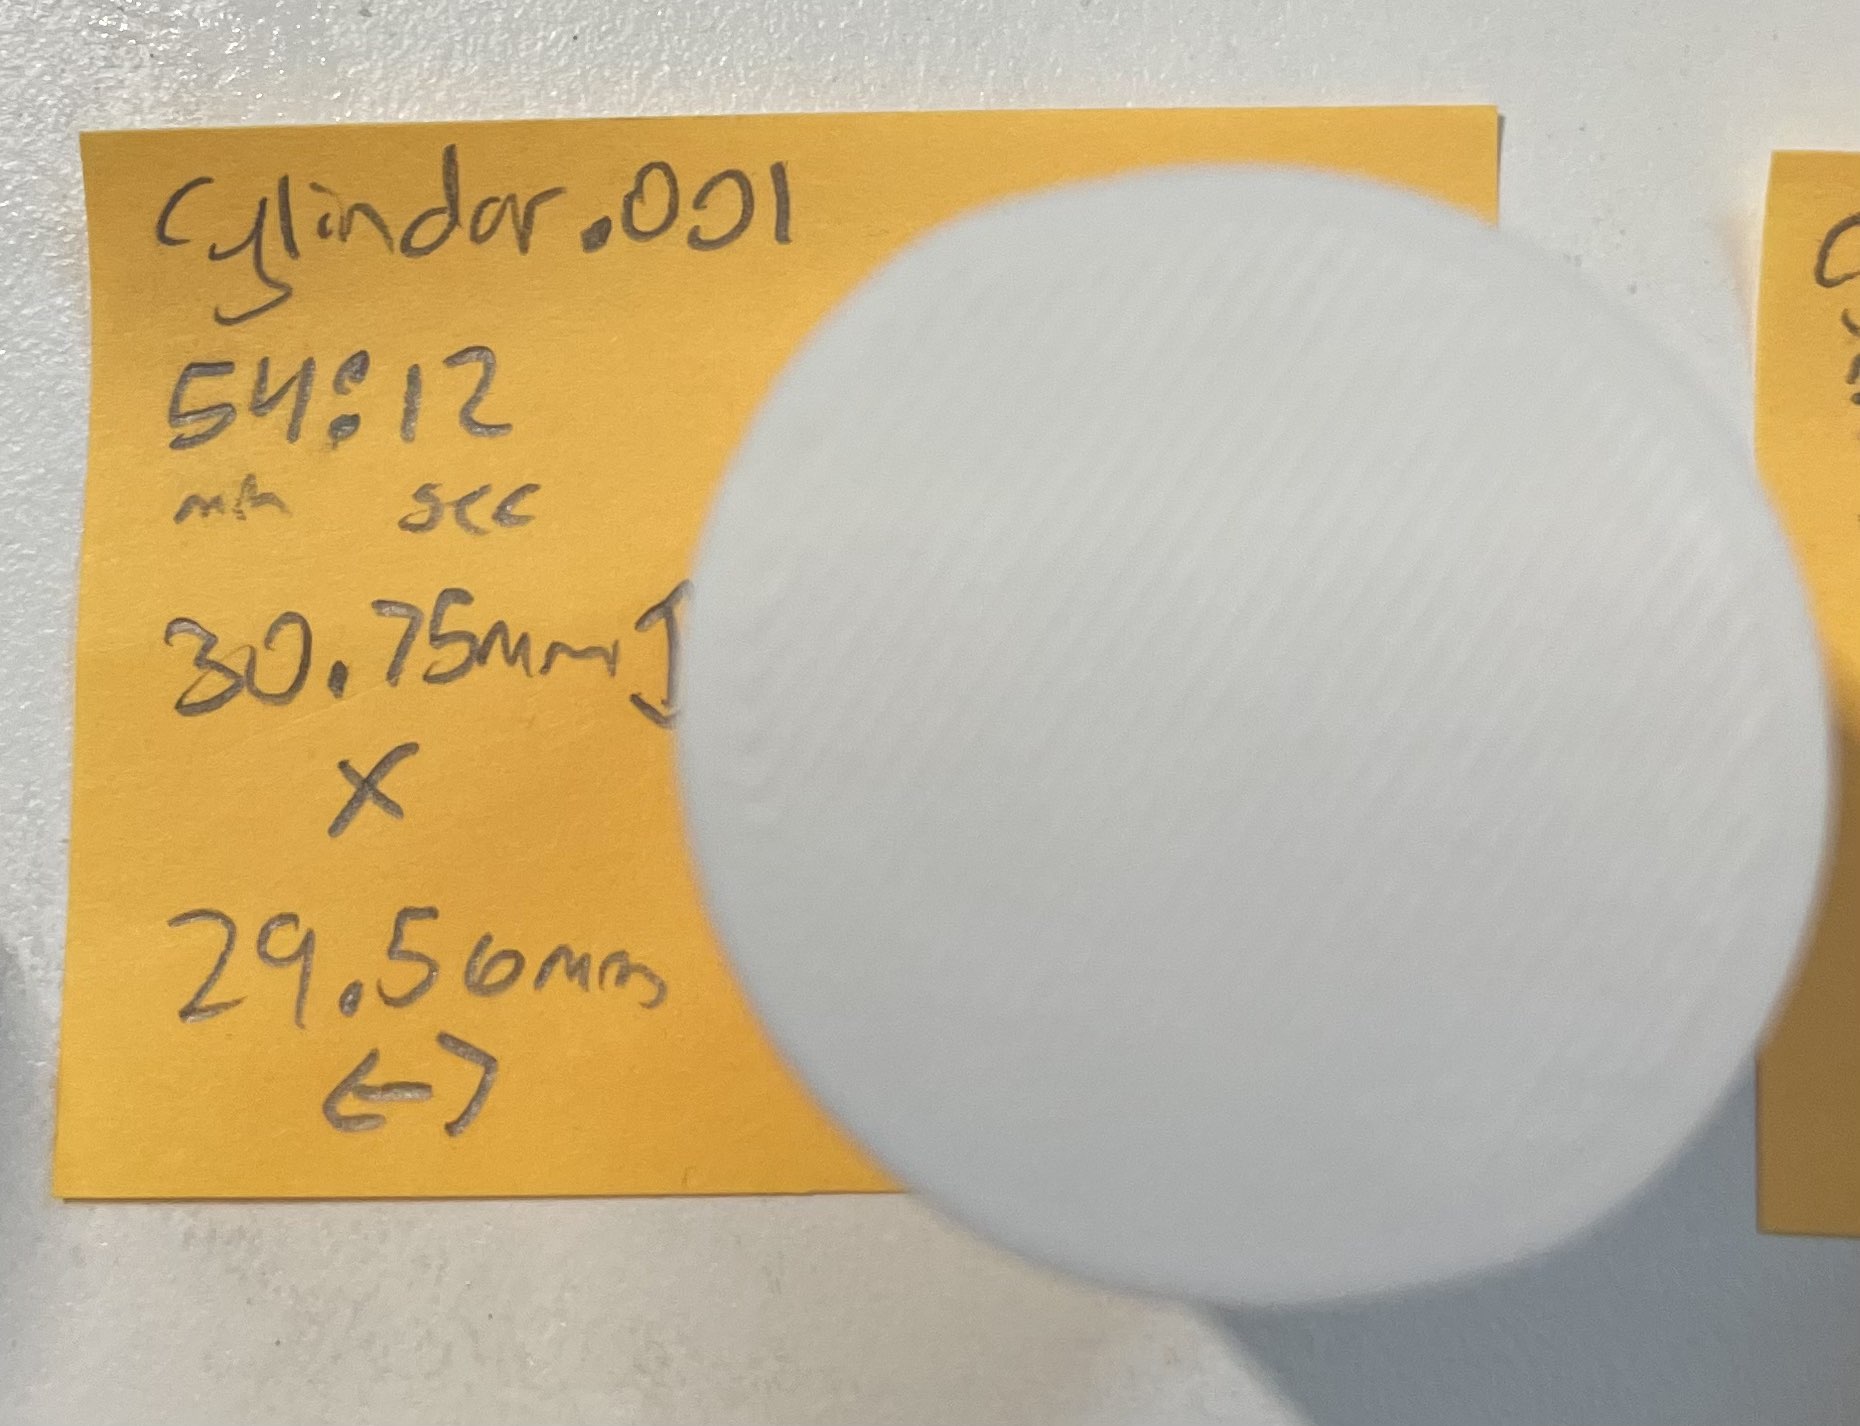 Cylindar.001
54:12
min sec
30.75mm ↕
x
29.56mm
↔